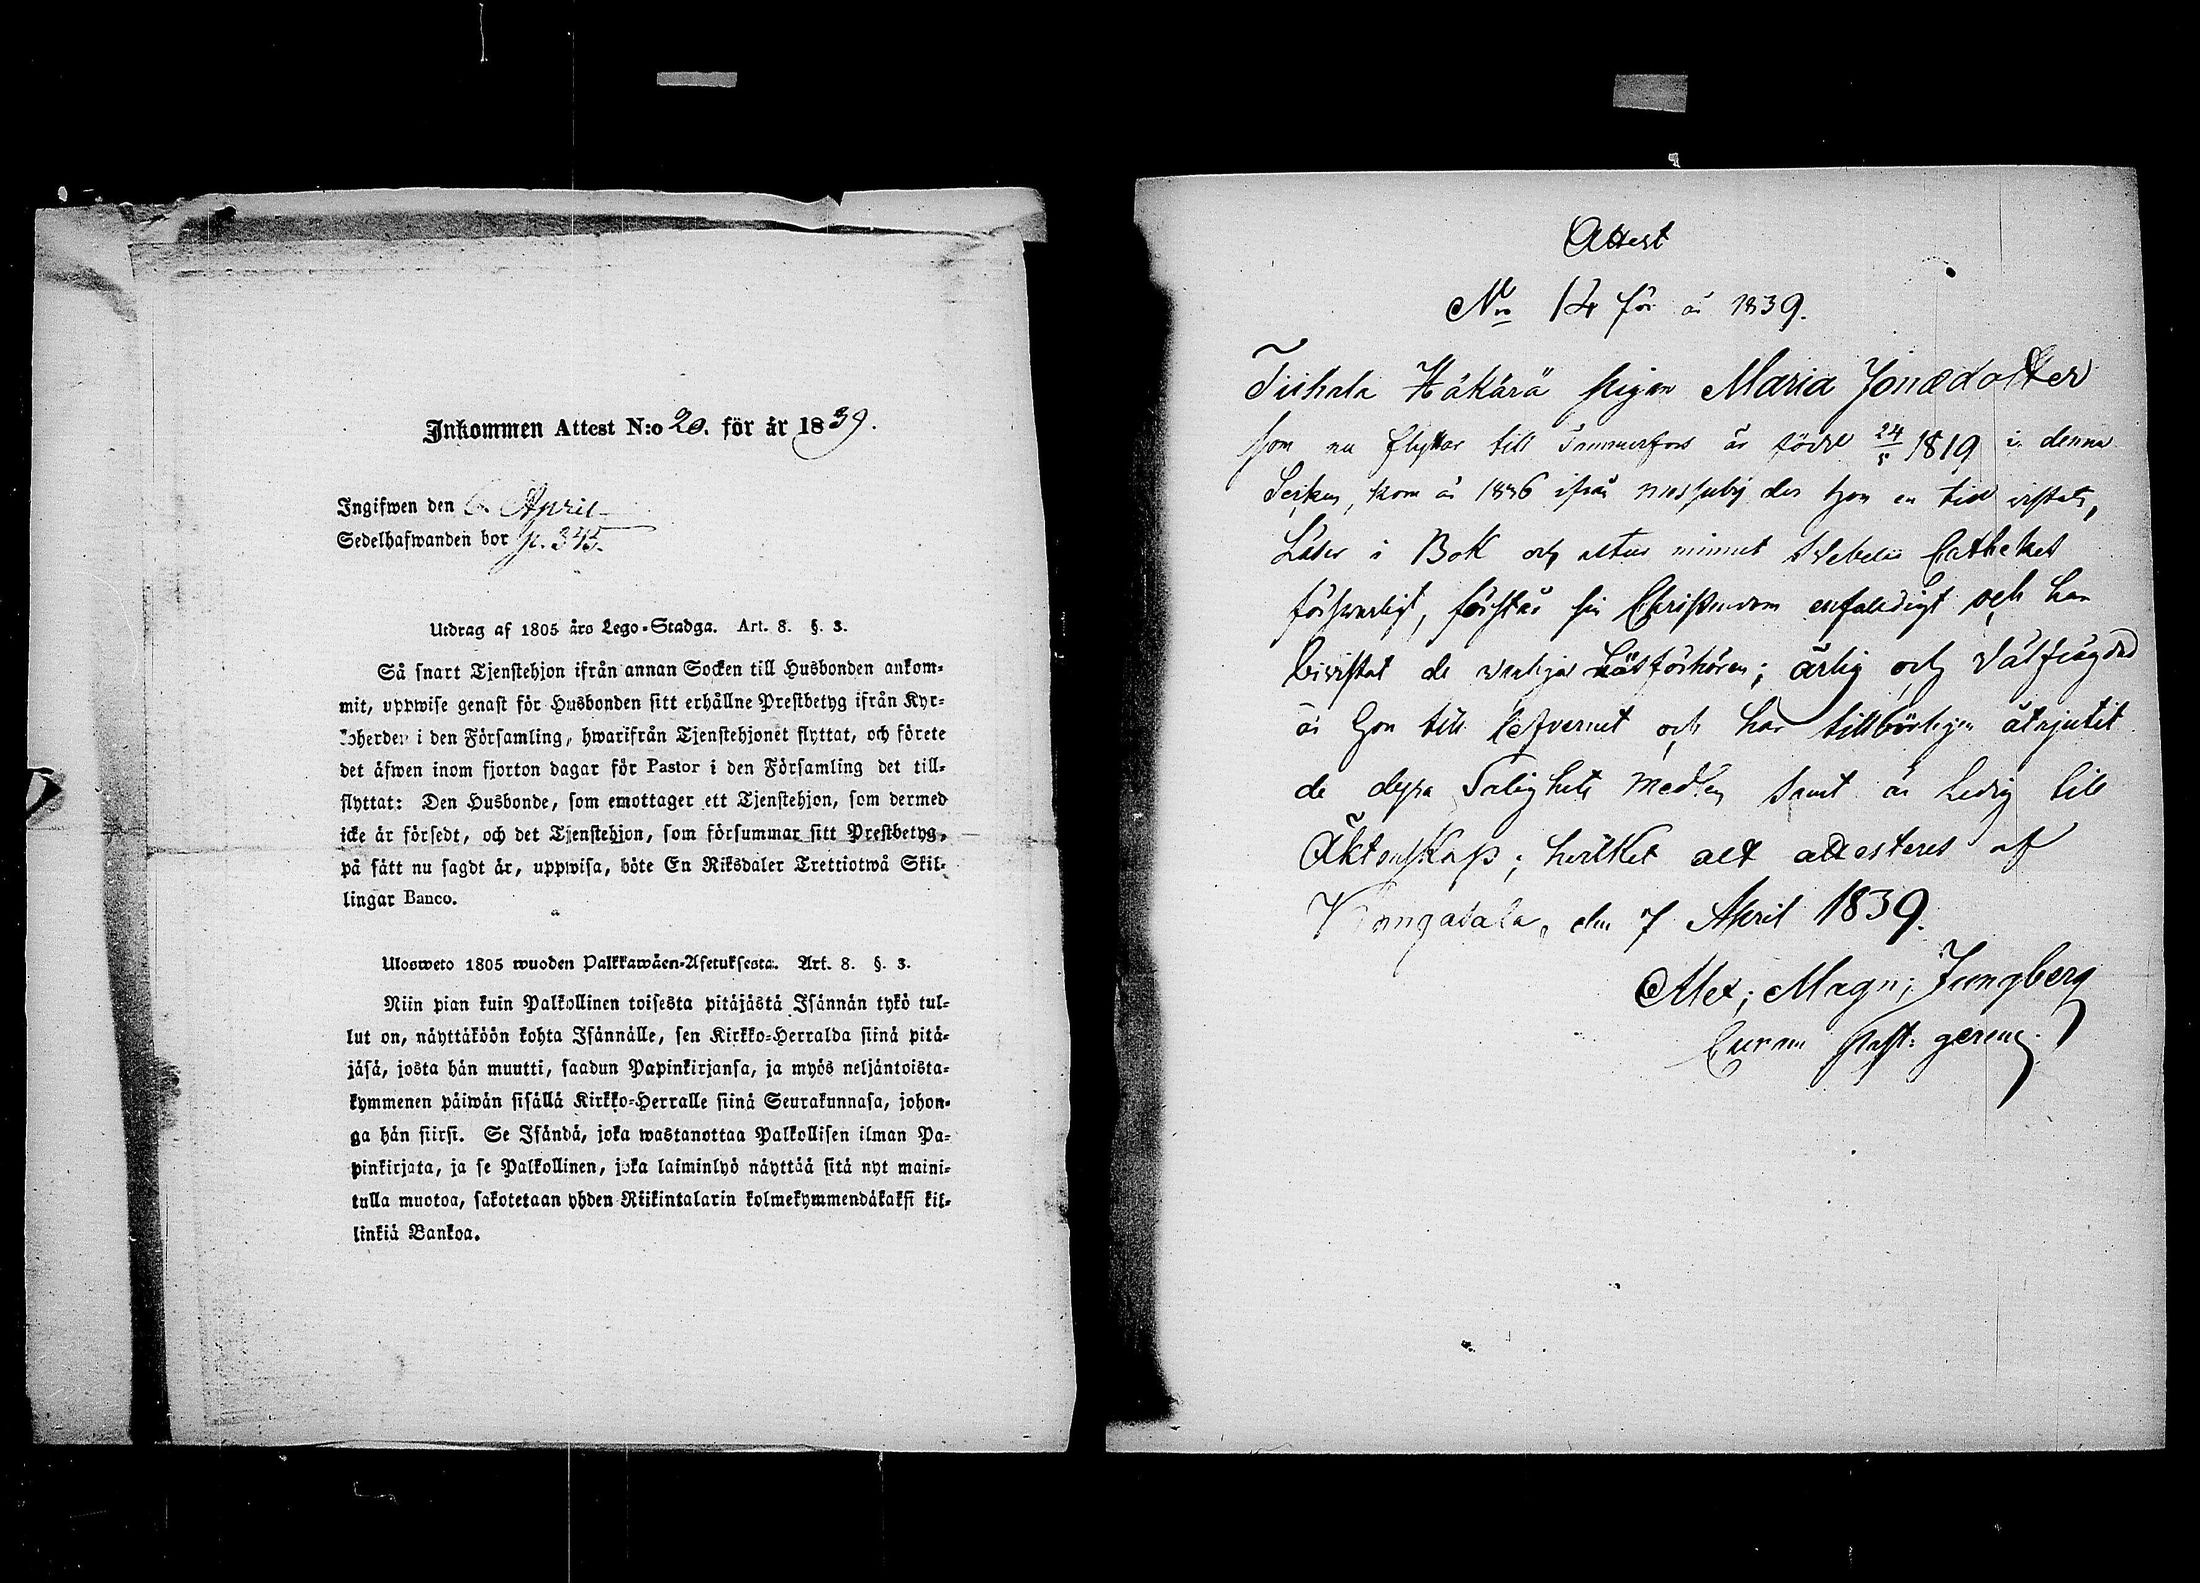 Inkommen Attest N:o 20. för år 1839.
Ingifwen den 6. April
Sedelhafwanden bor p. 345.
Utdrag af 1805 års Lego-Stadga. Art. 8. §. 3.
Så snart Tjenstehjon ifrån annan Socken till Husbonden ankom-
mit, uppwise genast för Husbonden sitt erhållne Prestbetyg ifrån Kyr-
koherden i den Församling, hwarifrån Tjenstehjonet flyttat, och förete
det äfwen inom fjorton dagar för Pastor i den Församling det till-
flyttat: Den Husbonde, som emottager ett Tjenstehjon, som dermed
icke är försedt, och det Tjenstehjon, som försummar sitt Prestbetyg,
på sätt nu sagdt är, uppwisa, böte En Riksdaler Trettiotwå Skil-
lingar Banco.
Ulosweto 1805 wuoden Palkkawäen-Asetuksesta. Art. 8. §. 3.
Niin pian kuin Palkollinen toisesta pitäjästä Isännän tykö tul-
lut on, näyttäköön kohta Isännälle, sen Kirkko-Herralda siinä pitä-
jäsä, josta hän muutti, saadun Papinkirjansa, ja myös neljäntoista-
kymmenen päiwän sisällä Kirkko-Herralle siinä Seurakunnasa, johon-
ga hän siirsi. Se Isändä, joka wastanottaa Palkollisen ilman Pa-
pinkirjata, ja se Palkollinen, joka laiminlyö näyttää sitä nyt maini-
tulla muotoa, sakotetaan yhden Riikintalarin kolmekymmendäkaksi kil-
linkiä Bankoa.
Attest
No 14 för år 1839.
Tiihala Häkärä pigan Maria Jonædotter
som nu flyttar till Tammerfors är född 24/5 1819 i denna
Socken, kom år 1836 ifrån Messuby der hon en tid vistats,
Läser i Bok och utur minnet Svebelii Cathekes
försvarligt, förstår sin Christendom enfaldigt och har
bivistat de vanliga Läsförhören; ärlig och välfrägdad
är hon till lefvernet och har tillbörligen åtnjutit
de dyra Salighets medlen samt är Ledig till
Äktenskap; hvilket allt attesteres af
Kangasala, den 7 April 1839.
Alex; Magn; Jungberg
past: